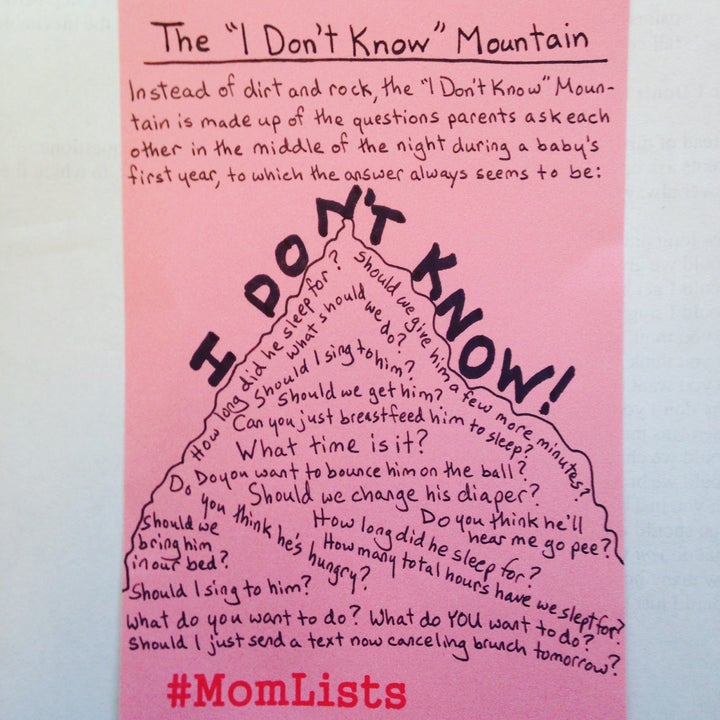 The "I Don't Know" Mountain
Instead of dirt and rock, the "I Don't Know" Moun-
tain is made up of the questions parents ask each
other in the middle of the night during a baby's
first year, to which the answer always seems to be:
I DON'T KNOW!
How long did he sleep for?
Should we give him a few more minutes?
What should we do?
Should I sing to him?
Should we get him?
Can you just breastfeed him to sleep?
What time is it?
Do you want to bounce him on the ball?
Do you think he's hungry?
Should we change his diaper?
Do you think he'll
hear me go pee?
Should we
bring him
in our bed?
How long did he sleep for?
How many total hours have we slept for?
Should I sing to him?
What do you want to do? What do YOU want to do?
Should I just send a text now canceling brunch tomorrow?
#MomLists